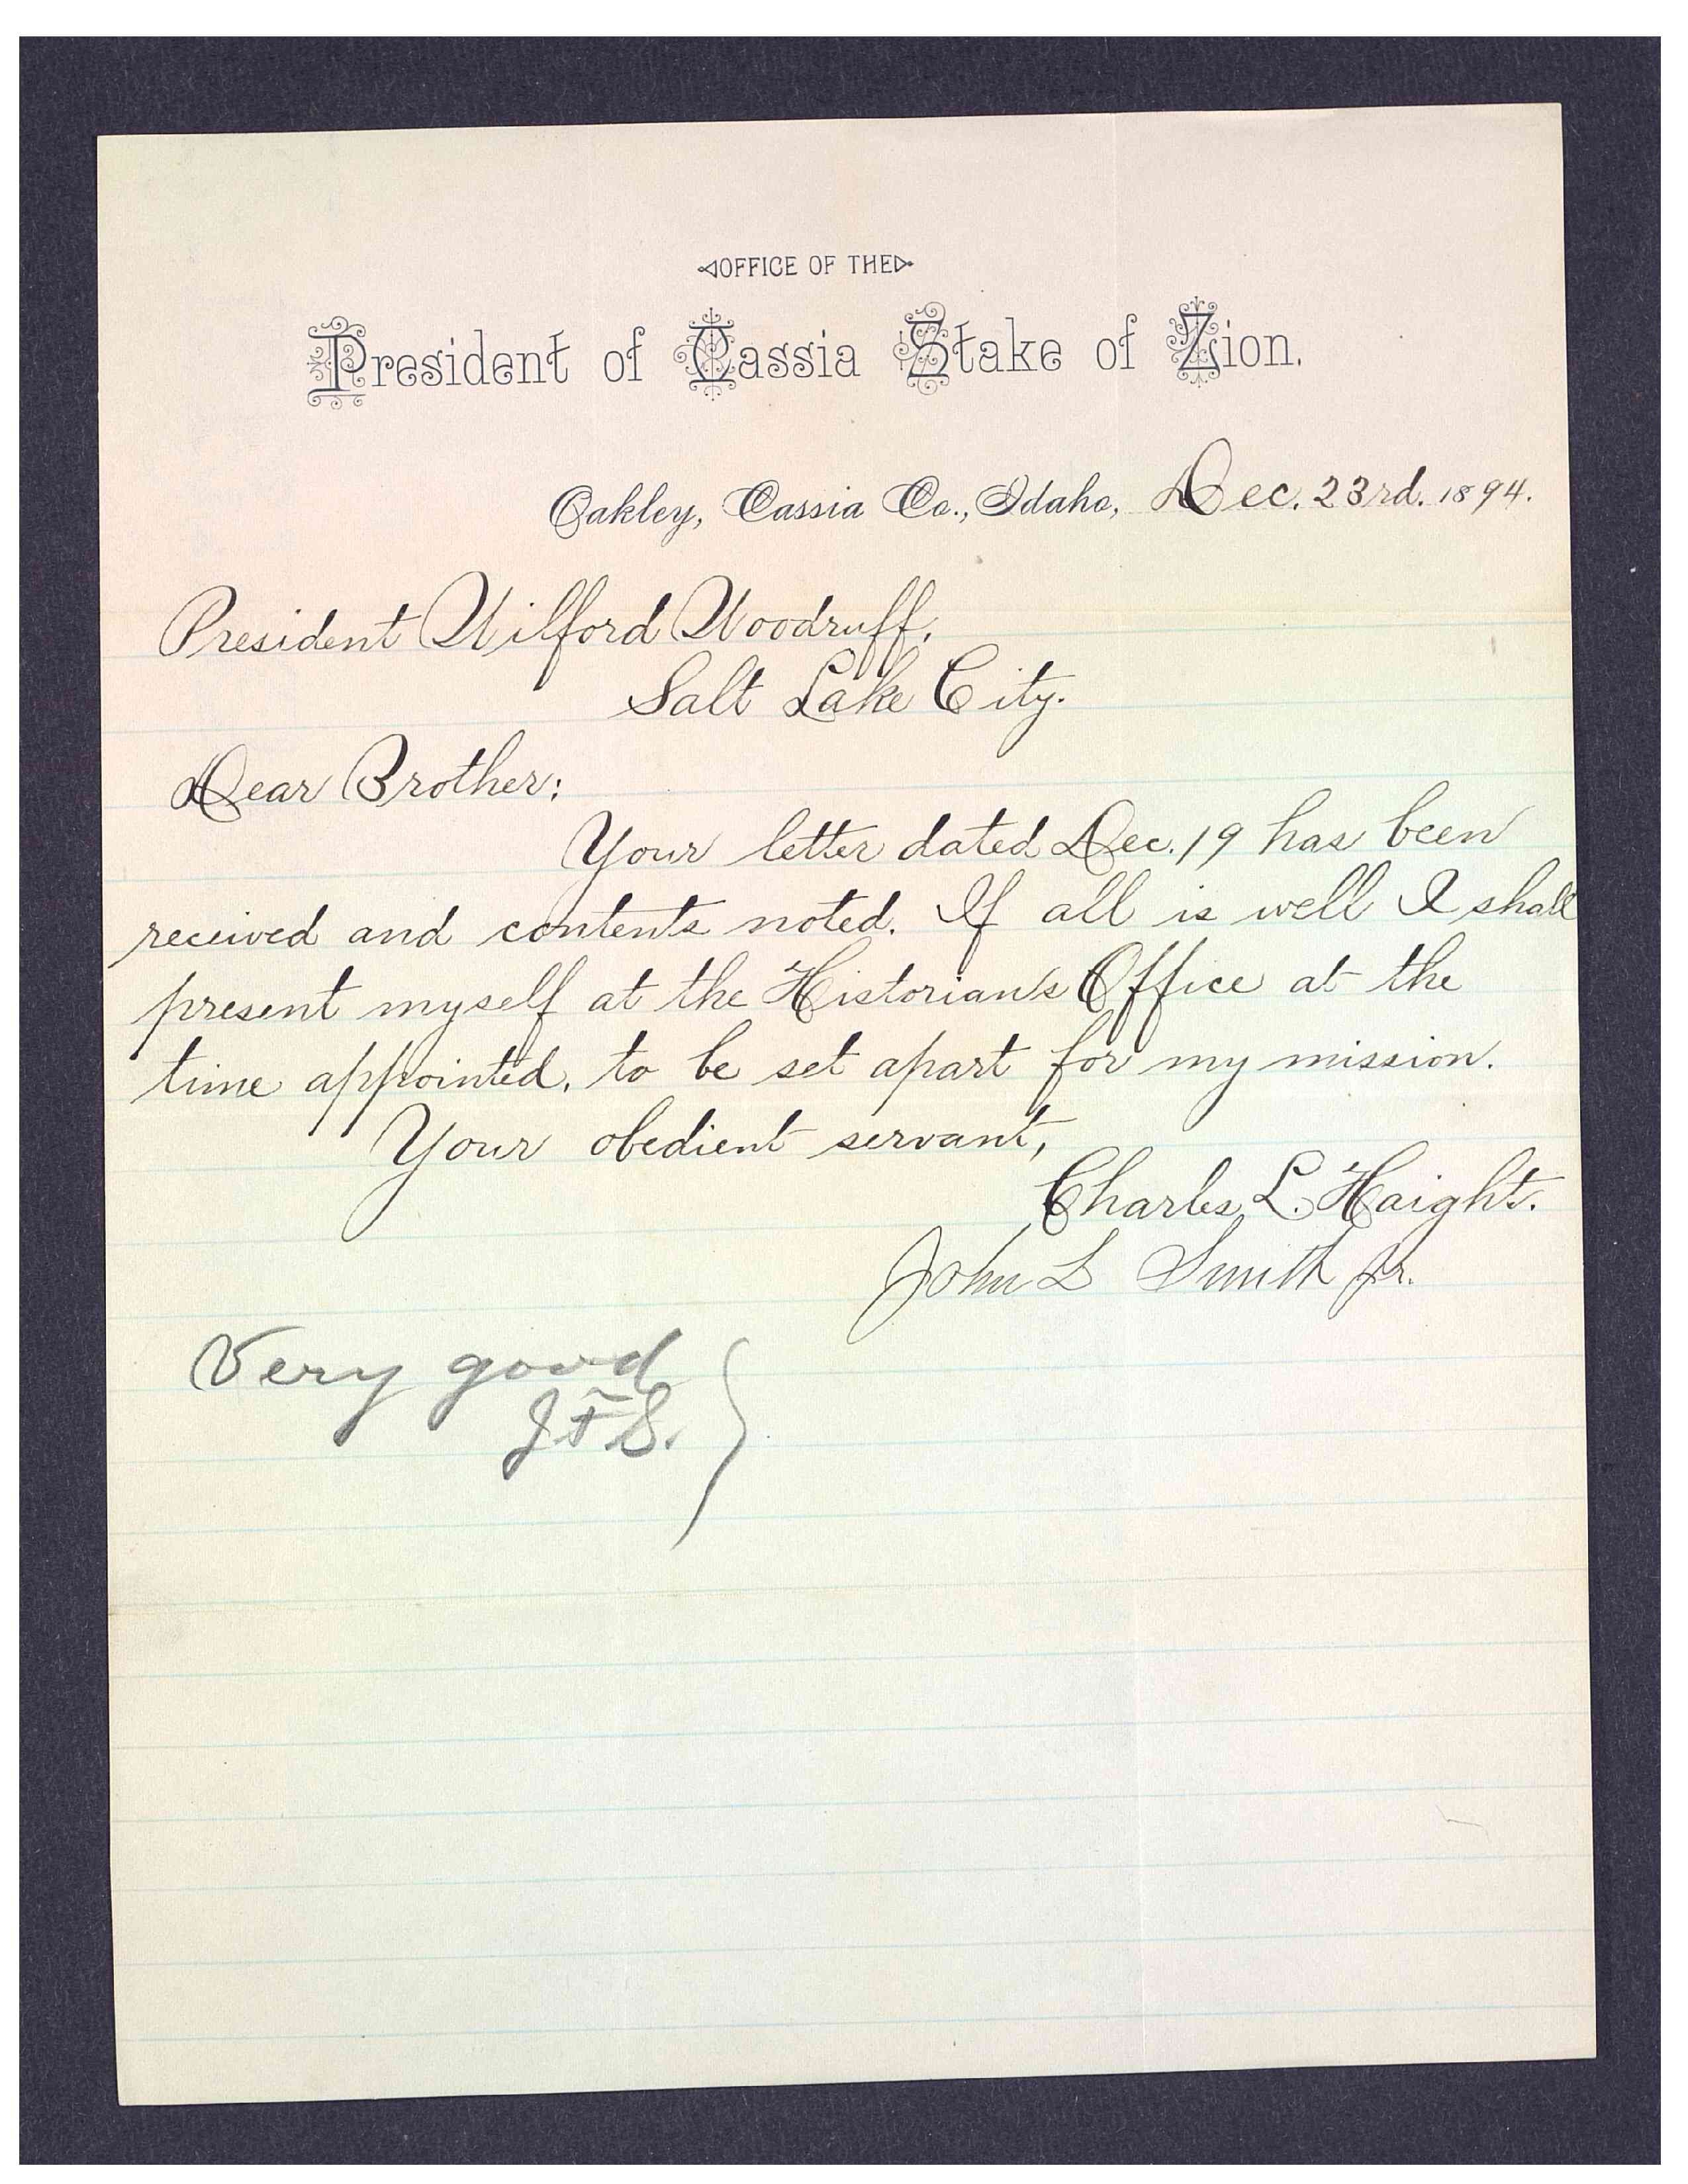 OFFICE OF THE
President of Cassia Stake of Zion.
Oakley, Cassia Co., Idaho, Dec. 23rd. 1894.
President Wilford Woodruff,
Salt Lake City.
Dear Brother:
Your letter dated Dec. 19 has been
received and contents noted. If all is well I shall
present myself at the Historian's Office at the
time appointed, to be set apart for my mission.
Your obedient servant,
Charles L. Haight.
John L Smith Jr.
Very good
J.F.S.